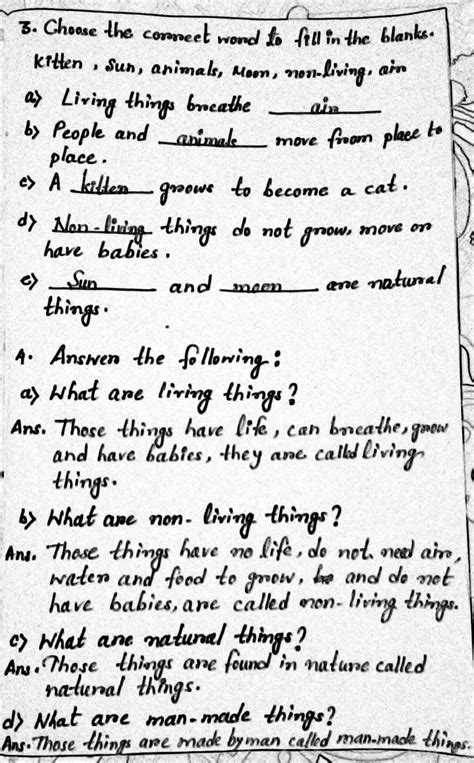 3. Choose the correct word to fill in the blanks.
kitten, sun, animals, Moon, non-living, air
a) Living things breathe air
b) People and animals move from place to
place.
c) A kitten grows to become a cat.
d) Non-living things do not grow, move or
have babies.
e) Sun and moon are natural
things.
4. Answer the following:
a) What are living things?
Ans. Those things have life, can breathe, grow
and have babies, they are calld living
things.
b) What are non-living things?
Ans. Those things have no life, do not need air,
water and food to grow, and do not
have babies, are called non-living things.
c) What are natural things?
Ans. Those things are found in nature called
natural things.
d) What are man-made things?
Ans. Those things are made by man called man-made things.